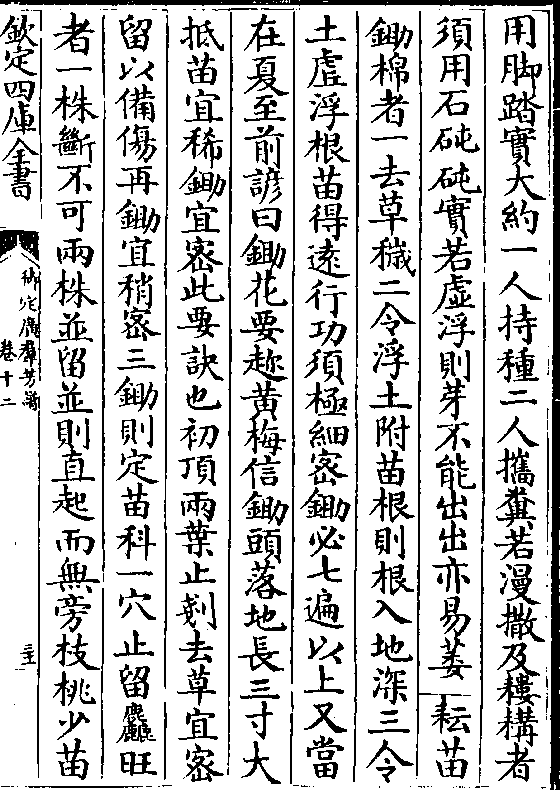 用脚踏實大約一人持種二人攜糞若漫撒及耬構者
須用石砘砘實若虚浮則芽不能出出亦易萎 耘苗
鋤棉者一去草穢二令浮土附苗根則根入地深三令
土虚浮根苗得逺行功須極細宻鋤必七遍以上又當
在夏至前諺曰鋤花要趂黄梅信鋤頭落地長三寸大
抵苗宜稀鋤宜宻此要訣也初頂兩葉止剗去草宜宻
留以備傷再鋤宜稍宻三鋤則定苗科一穴止留旺
者一株斷不可兩株並留並則直起而無旁枝桃少苗
欽定四庫全書
御定廣羣芳譜
卷十二